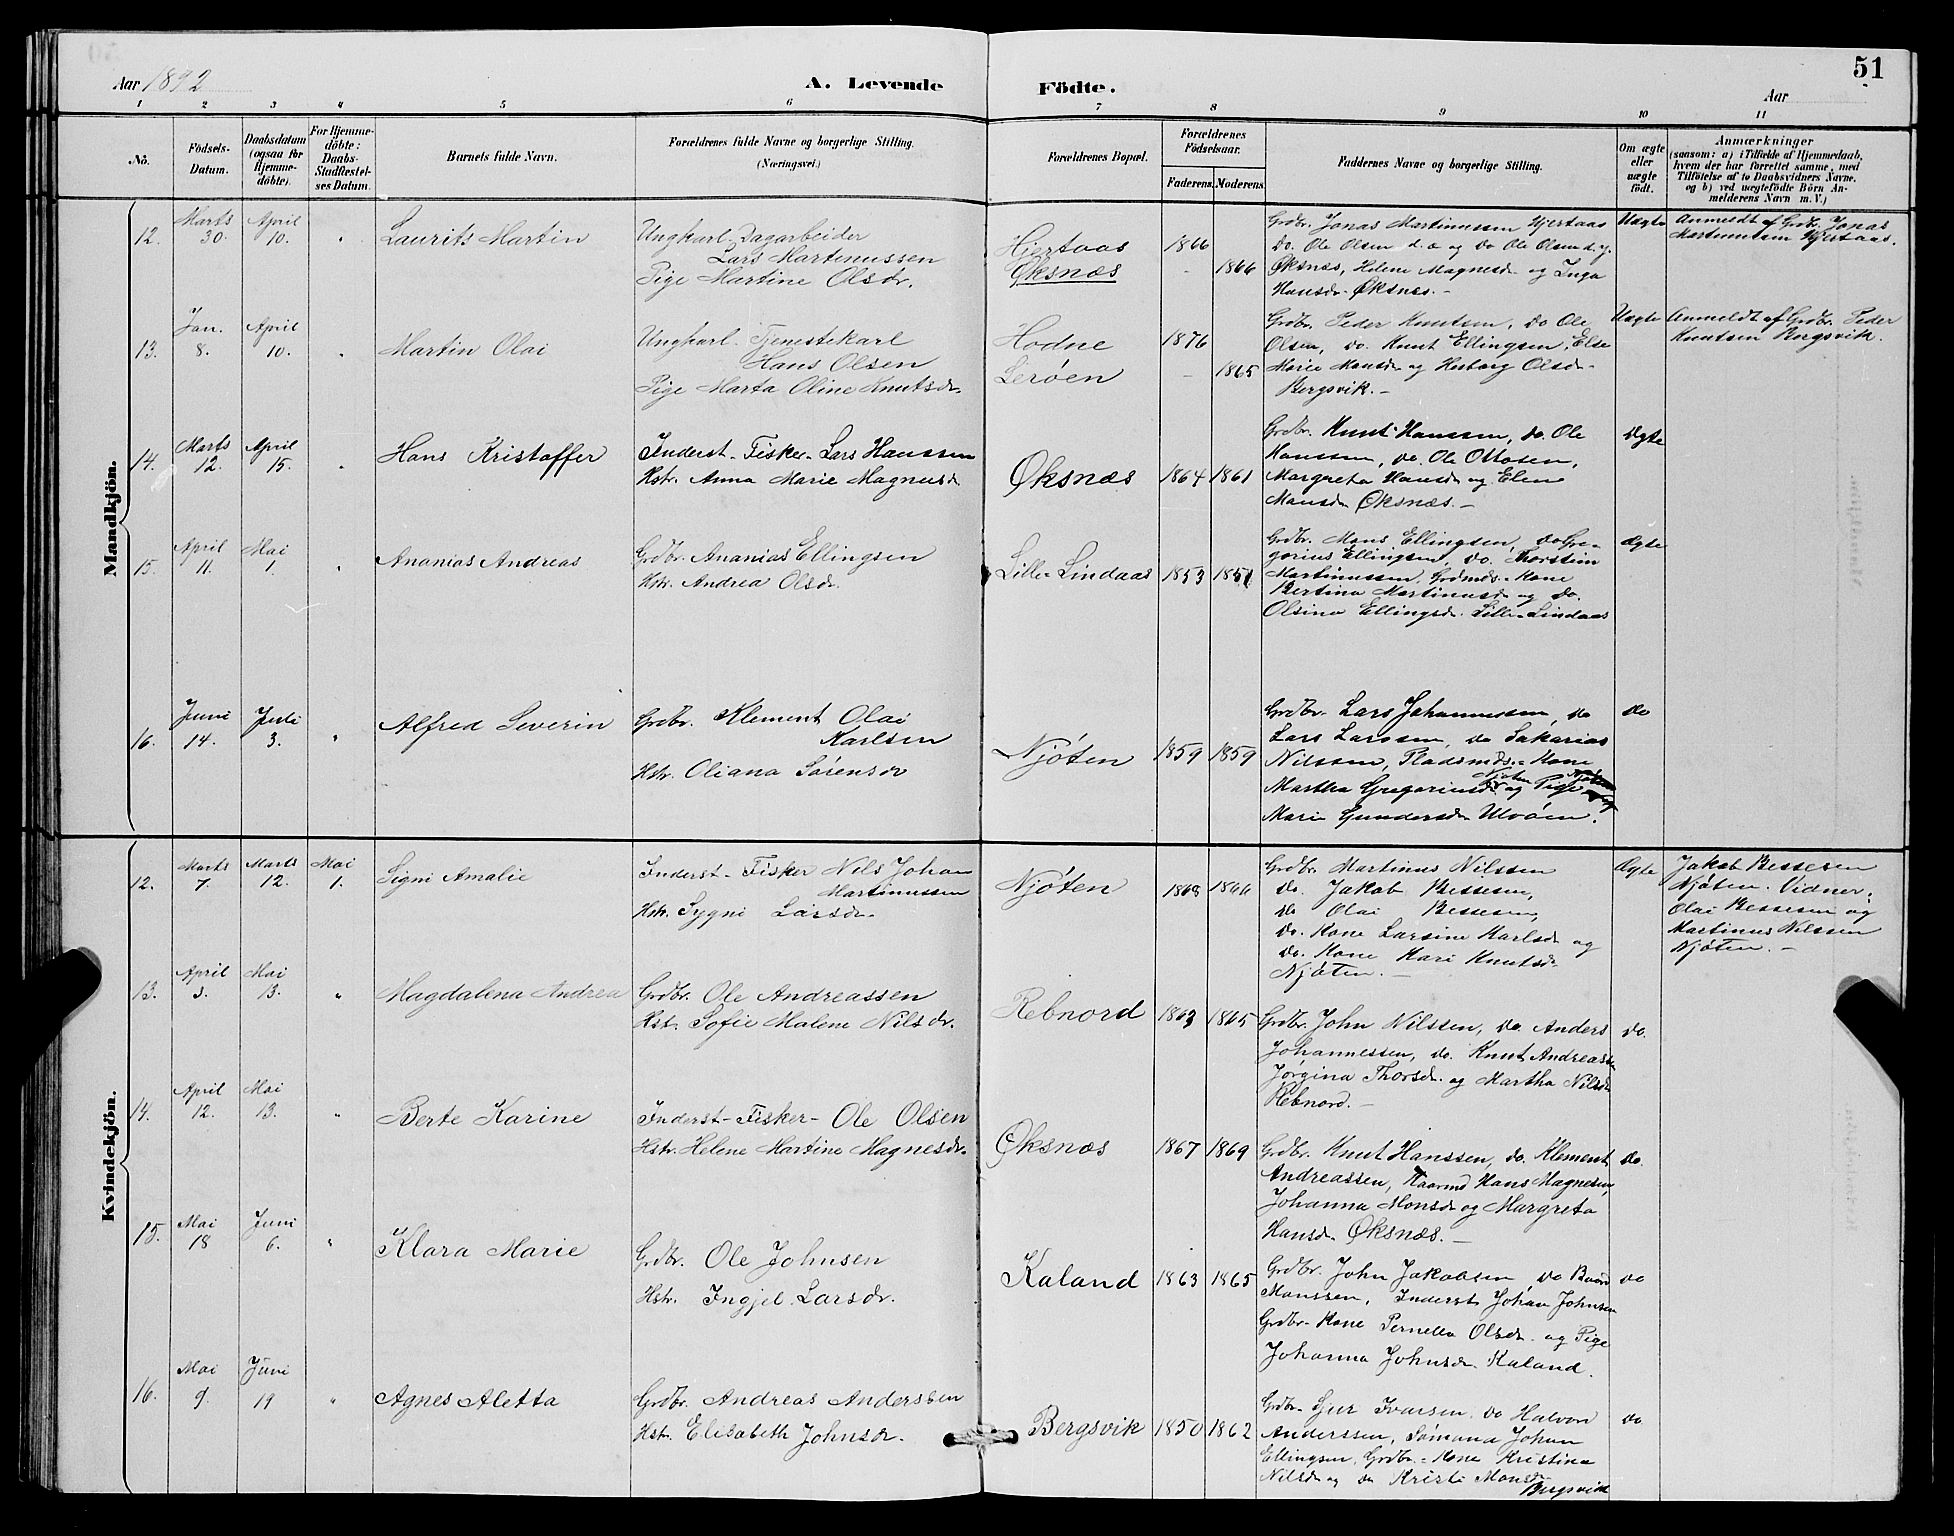 51
Aar 1892
A. Levende Födte.
Aar
1 2 3 4 5 6 7 8 9 10 11
No.
Födsels-Datum.
Daabsdatum (ogsaa for Hjemme-döbte).
For Hjemme-döbte: Daabs-Stadfæstel-ses Datum.
Barnets fulde Navn.
Forældrenes fulde Navne og borgerlige Stilling.
(Næringsvei.)
Forældrenes Bopæl.
Forældrenes Födselsaar.
Faderens. Moderens.
Faddernes Navne og borgerlige Stilling.
Om ægte eller uægte födt.
Anmærkninger
(saasom: a) i Tilfælde af Hjemmedaab, hvem der har forrettet samme, med Tilföielse af to Daabsvidners Navne. og b) ved uægtefödte Börn An-melderens Navn m. V.)
Mandkjön.
12. Marts 30. April 10. " Laurits Martin
Ungkarl Dagarbeider
Lars Martinussen
Pige Martine Olsdr.
Hjertaas 1866
Øksnæs - 1866
Grdbr. Jonas Martinussen Hjertaas
do. Ole Olsen d.æ og do Ole Olsen d.y.
Øksnæs, Helene Magnesdr og Inga
Hansdr Øksnæs. -
Uægte
Anmeldt af Grdbr. Jonas
Martinussen Hjertaas.
13. Jan. 8. April 10. " Martin Olai
Ungkarl Tjenestekarl
Hans Olsen
Pige Marta Oline Knutsdr.
Hodne 1876
Lerøen - 1865
Grdbr. Peder Knutsen, do Ole
Olsen, do. Knut Ellingsen, Else
Marie Monsdr og Herborg Olsdr
Bergsvik. -
Uægte
Anmeldt af Grdbr. Peder
Knutsen Bergsvik.
14. Marts 12. April 15. " Hans Kristoffer
Inderst - Fisker - Lars Hanssen
Hstr. Anna Marie Magnusdr
Øksnæs 1864 1861
Grdbr. Knut Hanssen, do. Ole
Hanssen, do. Ole Ottosen,
Margreta Hansdr og Elen
Monsdr Øksnæs. -
Ægte
15. April 11. Mai 1. " Ananias Andreas
Grdbr. Ananias Ellingsen
Hstr. Andrea Olsdr.
Lille Lindaas 1853 1851
Grdbr. Mons Ellingsen, do Gre-
gorius Ellingsen, do. Thorstein
Martinussen, Grdmds. Kone
Bertina Martinusdr og do.
Olsina Ellingsdr. Lille Lindaas
ægte
16. Juni 14. Juli 3. " Alfred Severin
Grdbr. Klement Olai
Karlsen
Hstr. Oliana Sørensdr
Njøten 1859 1859
Grdbr. Lars Johannessen, do
Lars Larssen, do Sakarias
Nilssen, Pladsmds. Kone
Martha Gregoriusdr Njøten og Pige
Marie Gundersdr Ulvøen.
do
Kvindekjön.
12. Marts 7. Marts 12. Mai 1. Signi Amalie
Inderst - Fisker Nils Johan
Martinussen
Hstr. Sygni Larsdr.
Njöten 1868 1866
Grdbr. Martinus Nilssen
do. Jakob Bessesen,
do Olai Bessesen,
do. Kone Larsine Karlsdr og
do. Kone Kari Knutsdr
Njøten. -
Ægte
Jakob Bessesen
Njøten. Vidner:
Olai Bessesen og
Martinus Nilssen
Njøten. -
13. April 3. Mai 13. " Magdalena Andrea
Grdbr. Ole Andreassen
Hst. Sofie Malene Nilsdr.
Rebnord 1863 1865
Grdbr. John Nilssen, do. Anders
Johannessen, do. Knut Andreassen
Jørgina Thorsdr. og Martha Nilsdr
Rebnord. -
do.
14. April 12. Mai 13. " Berte Karine
Inderst - Fisker - Ole Olsen
Hstr. Helene Martine Magnesdr.
Øksnæs 1867 1869
Grdbr. Knut Hanssen, do. Klement
Andreassen, Kaarmd Hans Magnesen,
Johanna Monsdr og Margreta
Hansdr Øksnæs. -
do.
15. Mai 18 Juni 6. " Klara Marie
Grdbr. Ole Johnsen
Hstr. Ingjel. Larsdr.
Kaland 1863 1865
Grdbr. John Jakobsen, do Baard
Monssen, Inderst Johan Johnsen
Grdbr. Kone Pernella Olsdr. og Pige
Johanna Johnsdr Kaland.
do
16. Mai 9. Juni 19 " Agnes Aletta
Grdbr. Andreas Anderssen
Hstr. Elisabeth Johnsdr.
Bergsvik 1850 1862
Grdbr. Sjur Ivarsen, do Halvor
Anderssen, Sømand Johan
Ellingsen, Grdbr. Kone Kristina
Nilsdr og do Kristi Monsdr
Bergsvik
do